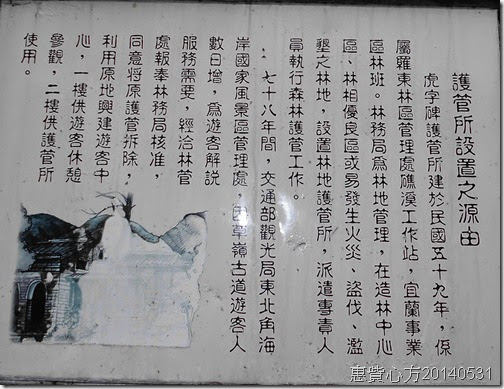 護管所設置之源由
虎字碑護管所建於民國五十九年，係
屬羅東林區管理處礁溪工作站，宜蘭事業
區林班。林務局為林地管理，在造林中心
區、林相優良區或易發生火災、盜伐、濫
墾之林地，設置林地護管所，派遣專責人
員執行森林護管工作。
七十八年間，交通部觀光局東北角海
岸國家風景區管理處，因草嶺古道遊客人
數日增，為遊客解說
服務需要，經洽林管
處報奉林務局核准，
同意將原護管拆除，
利用原地興建遊客中
心，一樓供遊客休憩
參觀，二樓供護管所
使用。
惠貲心方20140531